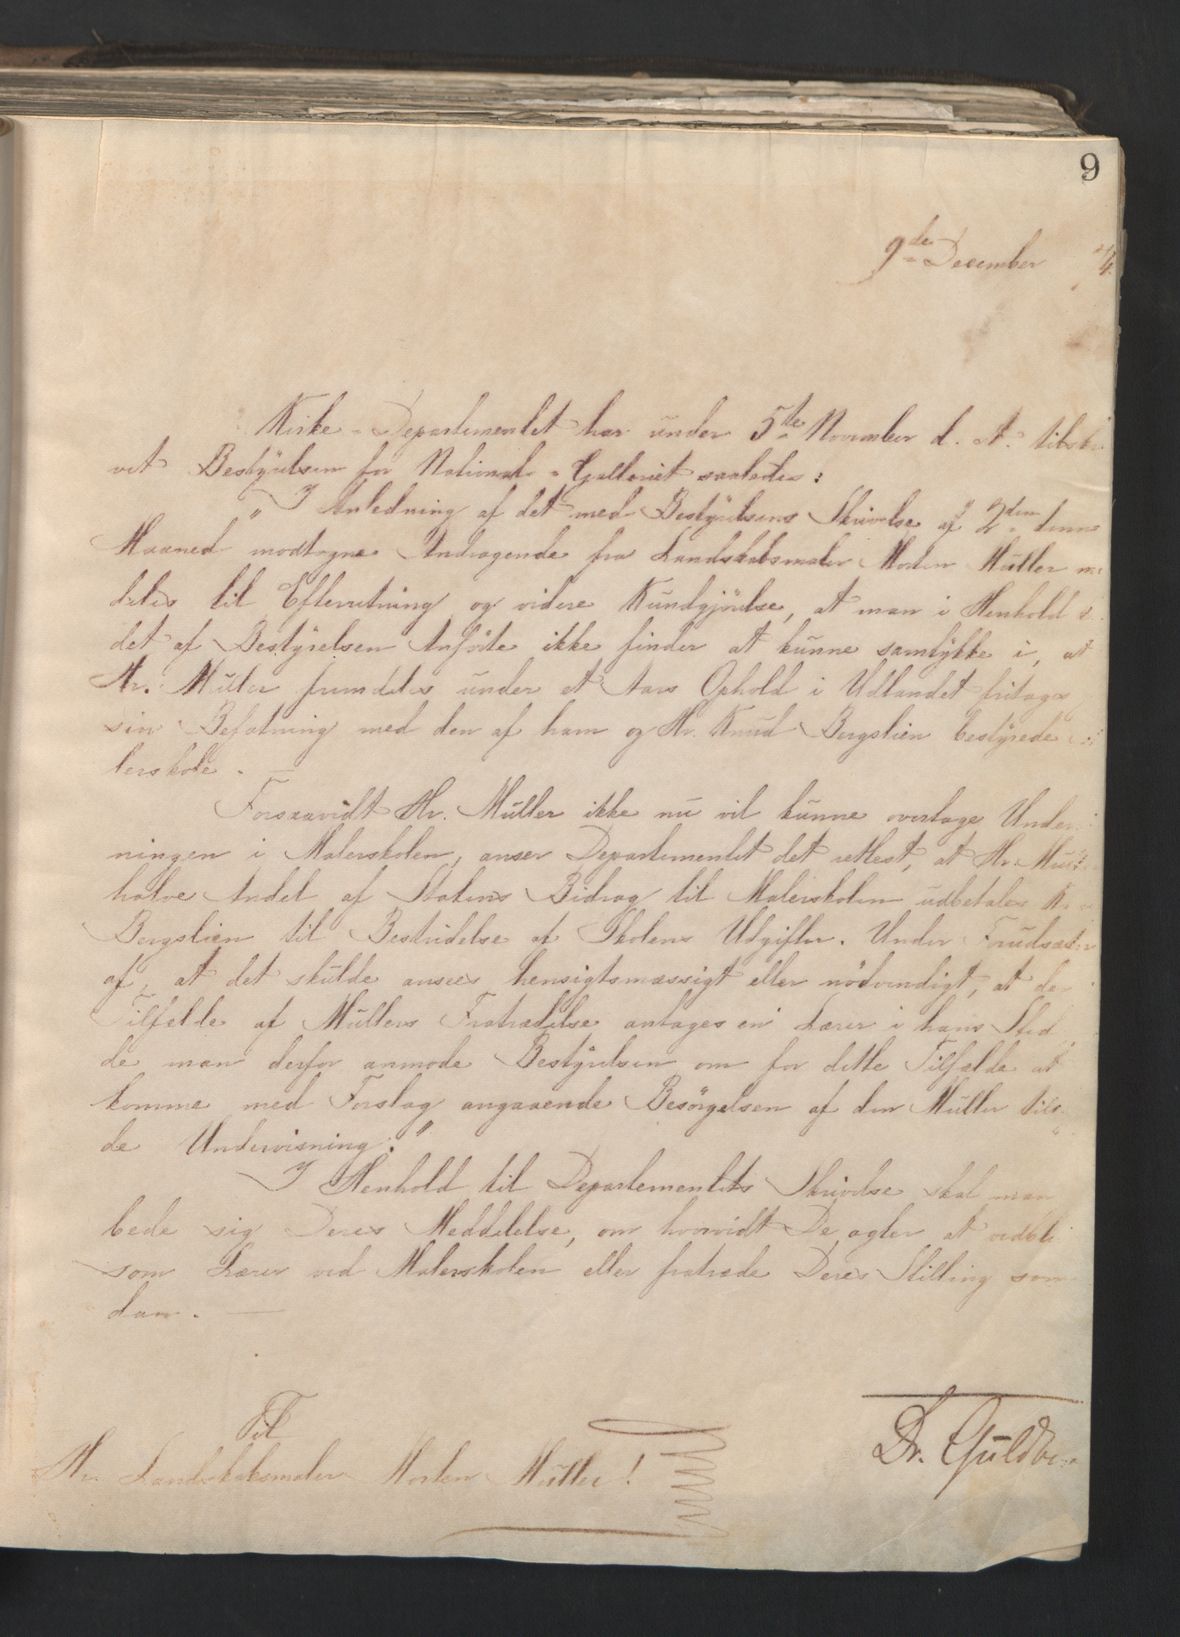 9
9de December 4
Kirke-Departementet har under 5te November d. A. tilskre
vet Bestyrelsen for National-Galleriet saaledes:
"I Anledning af det med Bestyrelsens Skrivelse af 2den denne
Maaned modtagne Andragende fra Landskabsmaler Morten Müller m
deles til Efterretning og videre Kundgjörelse, at man i Henhold t
det af Bestyrelsen Anförte ikke finder at kunne samtykke i, at
Hr. Müller fremdeles under et Aars Ophold i Udlandet fritages
sin Befatning med den af ham og Hr. Knud Bergslien bestyrede
lerskole. —
Forsaavidt Hr. Müller ikke nu vil kunne overtage Under
ningen i Malerskolen, anser Departementet det rettest, at Hr. Müll
halve Andel af Statens Bidrag til Malerskolen udbetales K.
Bergslien til Bestridelse af Skolens Udgifter. Under Forudsætn
af, at det skulde ansees hensigtsmæssigt eller nödvendigt, at der
Tilfælde af Müllers Fratrædelse antages en Lærer i hans Sted
de man derfor anmode Bestyrelsen om for dette Tilfælde at
komme med Forslag angaaende Besörgelsen af den Müller till
de Undervisning."
I Henhold til Departementets Skrivelse skal man
bede sig Deres Meddelelse, om hvorvidt De agter at vedbli
som Lærer ved Malerskolen eller fratræde Deres Stilling som
dan. —
Til
Hr. Landskabsmaler Morten Müller!
Dr. Guldbe